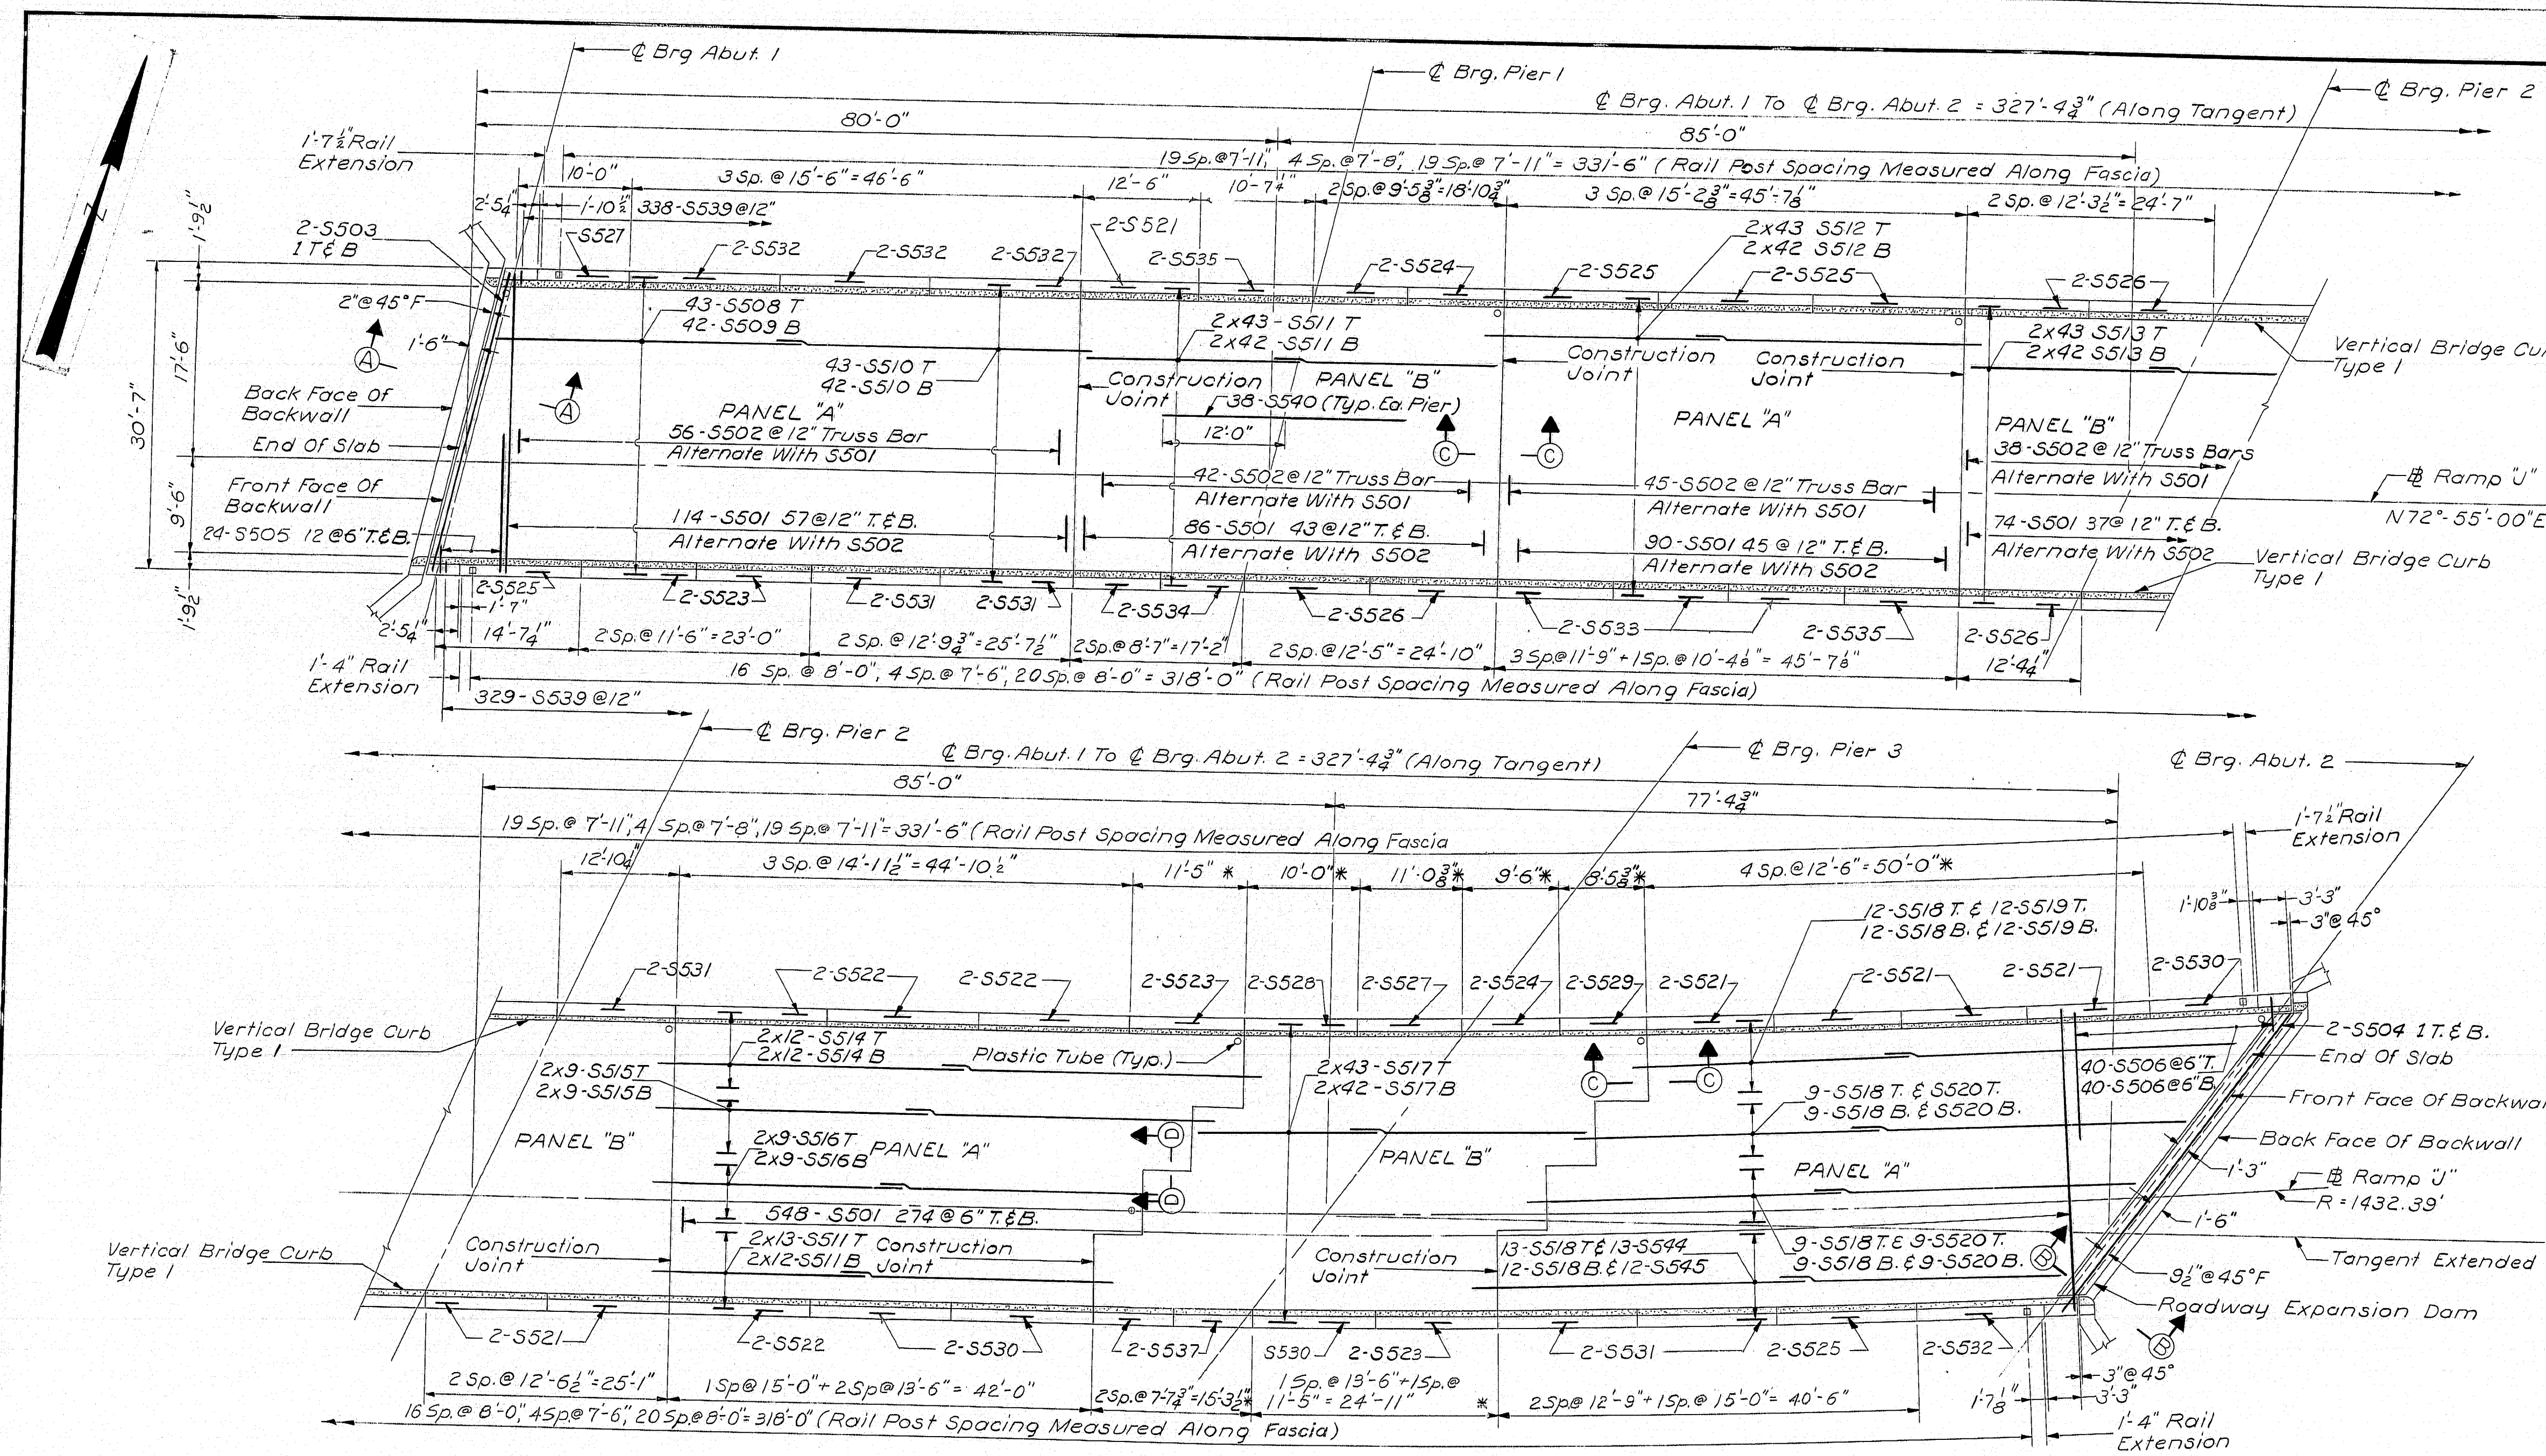 ℄ Brg Abut. 1
℄ Brg. Pier 1
℄ Brg. Pier 2
℄ Brg. Abut. 1 To ℄ Brg. Abut. 2 = 327'-4¾" (Along Tangent)
80'-0"
85'-0"
1'-7½" Rail
Extension
19 Sp.@7'-11", 4 Sp.@7'-8", 19 Sp.@ 7'-11" = 331'-6" (Rail Post Spacing Measured Along Fascia)
10'-0"
3 Sp.@ 15'-6"=46'-6"
12'-6"
10'-7¼"
2 Sp.@9'-5⅜"=18'-10¾"
3 Sp.@ 15'-2⅜"=45'-7⅛"
2 Sp.@ 12'-3½"=24'-7"
2'-5¼"
1'-10½"
338-S539@12"
1'-9½"
2-S503
1 T & B
S527
2-S532
2-S532
2-S532
2-S521
2-S535
2-S524
2-S525
2x43 S512 T
2x42 S512 B
2-S525
2-S526
N
2"@45°F
43-S508 T
42-S509 B
2x43-S511 T
2x42-S511 B
2x43 S513 T
2x42 S513 B
A
1'-6"
17'-6"
30'-7"
43-S510 T
42-S510 B
Construction
Joint
PANEL "B"
Construction
Joint
Construction
Joint
Vertical Bridge Cu
Type 1
Back Face Of
Backwall
A
PANEL "A"
38-S540 (Typ. Ea. Pier)
PANEL "A"
PANEL "B"
End Of Slab
56-S502@12" Truss Bar
Alternate With S501
12'-0"
C
C
38-S502@12" Truss Bars
Alternate With S501
Front Face Of
Backwall
42-S502@12" Truss Bar
Alternate With S501
45-S502@12" Truss Bar
Alternate With S501
℄ Ramp "J"
N72°-55'-00"E
9'-6"
24-S505 12@6"T.&B.
114-S501 57@12" T.&B.
Alternate With S502
86-S501 43@12"T.&B.
Alternate With S502
90-S501 45@12"T.&B.
Alternate With S502
74-S501 37@12"T.&B.
Alternate With S502
Vertical Bridge Curb
Type 1
1'-9½"
2-S525
1'-7"
2-S523
2-S531
2-S531
2-S534
2-S526
2-S533
2-S535
2-S526
2'-5¼"
14'-7¼"
2Sp.@11'-6"=23'-0"
2 Sp.@ 12'-9¾"=25'-7½"
2Sp.@8'-7"=17'-2"
2 Sp.@12'-5"=24'-10"
3 Sp@11'-9"+1Sp.@10'-4⅛"= 45'-7⅛"
12'-4¼"
1'-4" Rail
Extension
16 Sp. @ 8'-0", 4 Sp.@ 7'-6", 20 Sp.@ 8'-0" = 318'-0" (Rail Post Spacing Measured Along Fascia)
329-S539@12"
℄ Brg. Pier 2
℄ Brg. Abut. 1 To ℄ Brg. Abut. 2 = 327'-4¾" (Along Tangent)
℄ Brg. Pier 3
℄ Brg. Abut. 2
85'-0"
77'-4¾"
19 Sp.@ 7'-11", 4 Sp.@7'-8", 19 Sp.@ 7'-11"=331'-6" (Rail Post Spacing Measured Along Fascia
1'-7½" Rail
Extension
12'-10¼"
3 Sp.@ 14'-11½"=44'-10½"
11'-5" *
10'-0"*
11'-0⅜"*
9'-6"*
8'-5⅜"*
4 Sp.@12'-6"=50'-0"*
1'-10⅜"
3'-3"
3"@45°
12-S518 T. & 12-S519 T.
12-S518 B. & 12-S519 B.
2-S531
2-S522
2-S522
2-S523
2-S528
2-S527
2-S524
2-S529
2-S521
2-S521
2-S521
2-S530
Vertical Bridge Curb
Type 1
2x12-S514 T
2x12-S514 B
Plastic Tube (Typ.)
2-S504 1T.& B.
End Of Slab
2x9-S515T
2x9-S515B
2x43-S517 T
2x42-S517B
C
C
9-S518 T. & S520 T.
9-S518 B. & S520 B.
40-S506@6"T.
40-S506@6"B.
Front Face Of Backwal
PANEL "B"
2x9-S516T
2x9-S516B
PANEL "A"
D
PANEL "B"
PANEL "A"
Back Face Of Backwall
1'-3"
℄ Ramp "J"
R = 1432.39'
D
548-S501 274@6"T.&B.
1'-6"
Vertical Bridge Curb
Type 1
Construction
Joint
2x13-S511 T
2x12-S511B
Construction
Joint
Construction
Joint
13-S518T & 13-S544
12-S518B.& 12-S545
9-S518T.& 9-S520T.
9-S518 B. & 9-S520 B.
B
Tangent Extended
9½"@45°F
Roadway Expansion Dam
2-S521
2-S522
2-S530
2-S537
S530
2-S523
2-S531
2-S525
2-S532
B
2 Sp.@ 12'-6½"=25'-1"
1Sp@15'-0"+2Sp@13'-6"= 42'-0"
2Sp.@7'-7¾"=15'-3½"*
1 Sp.@ 13'-6"+1Sp.@
11'-5" = 24'-11" *
2Sp.@ 12'-9"+1Sp.@ 15'-0"= 40'-6"
1'-7⅛"
3"@45°
3'-3"
16 Sp.@ 8'-0", 4Sp.@7'-6", 20 Sp.@8'-0"=318'-0" (Rail Post Spacing Measured Along Fascia)
1'-4" Rail
Extension